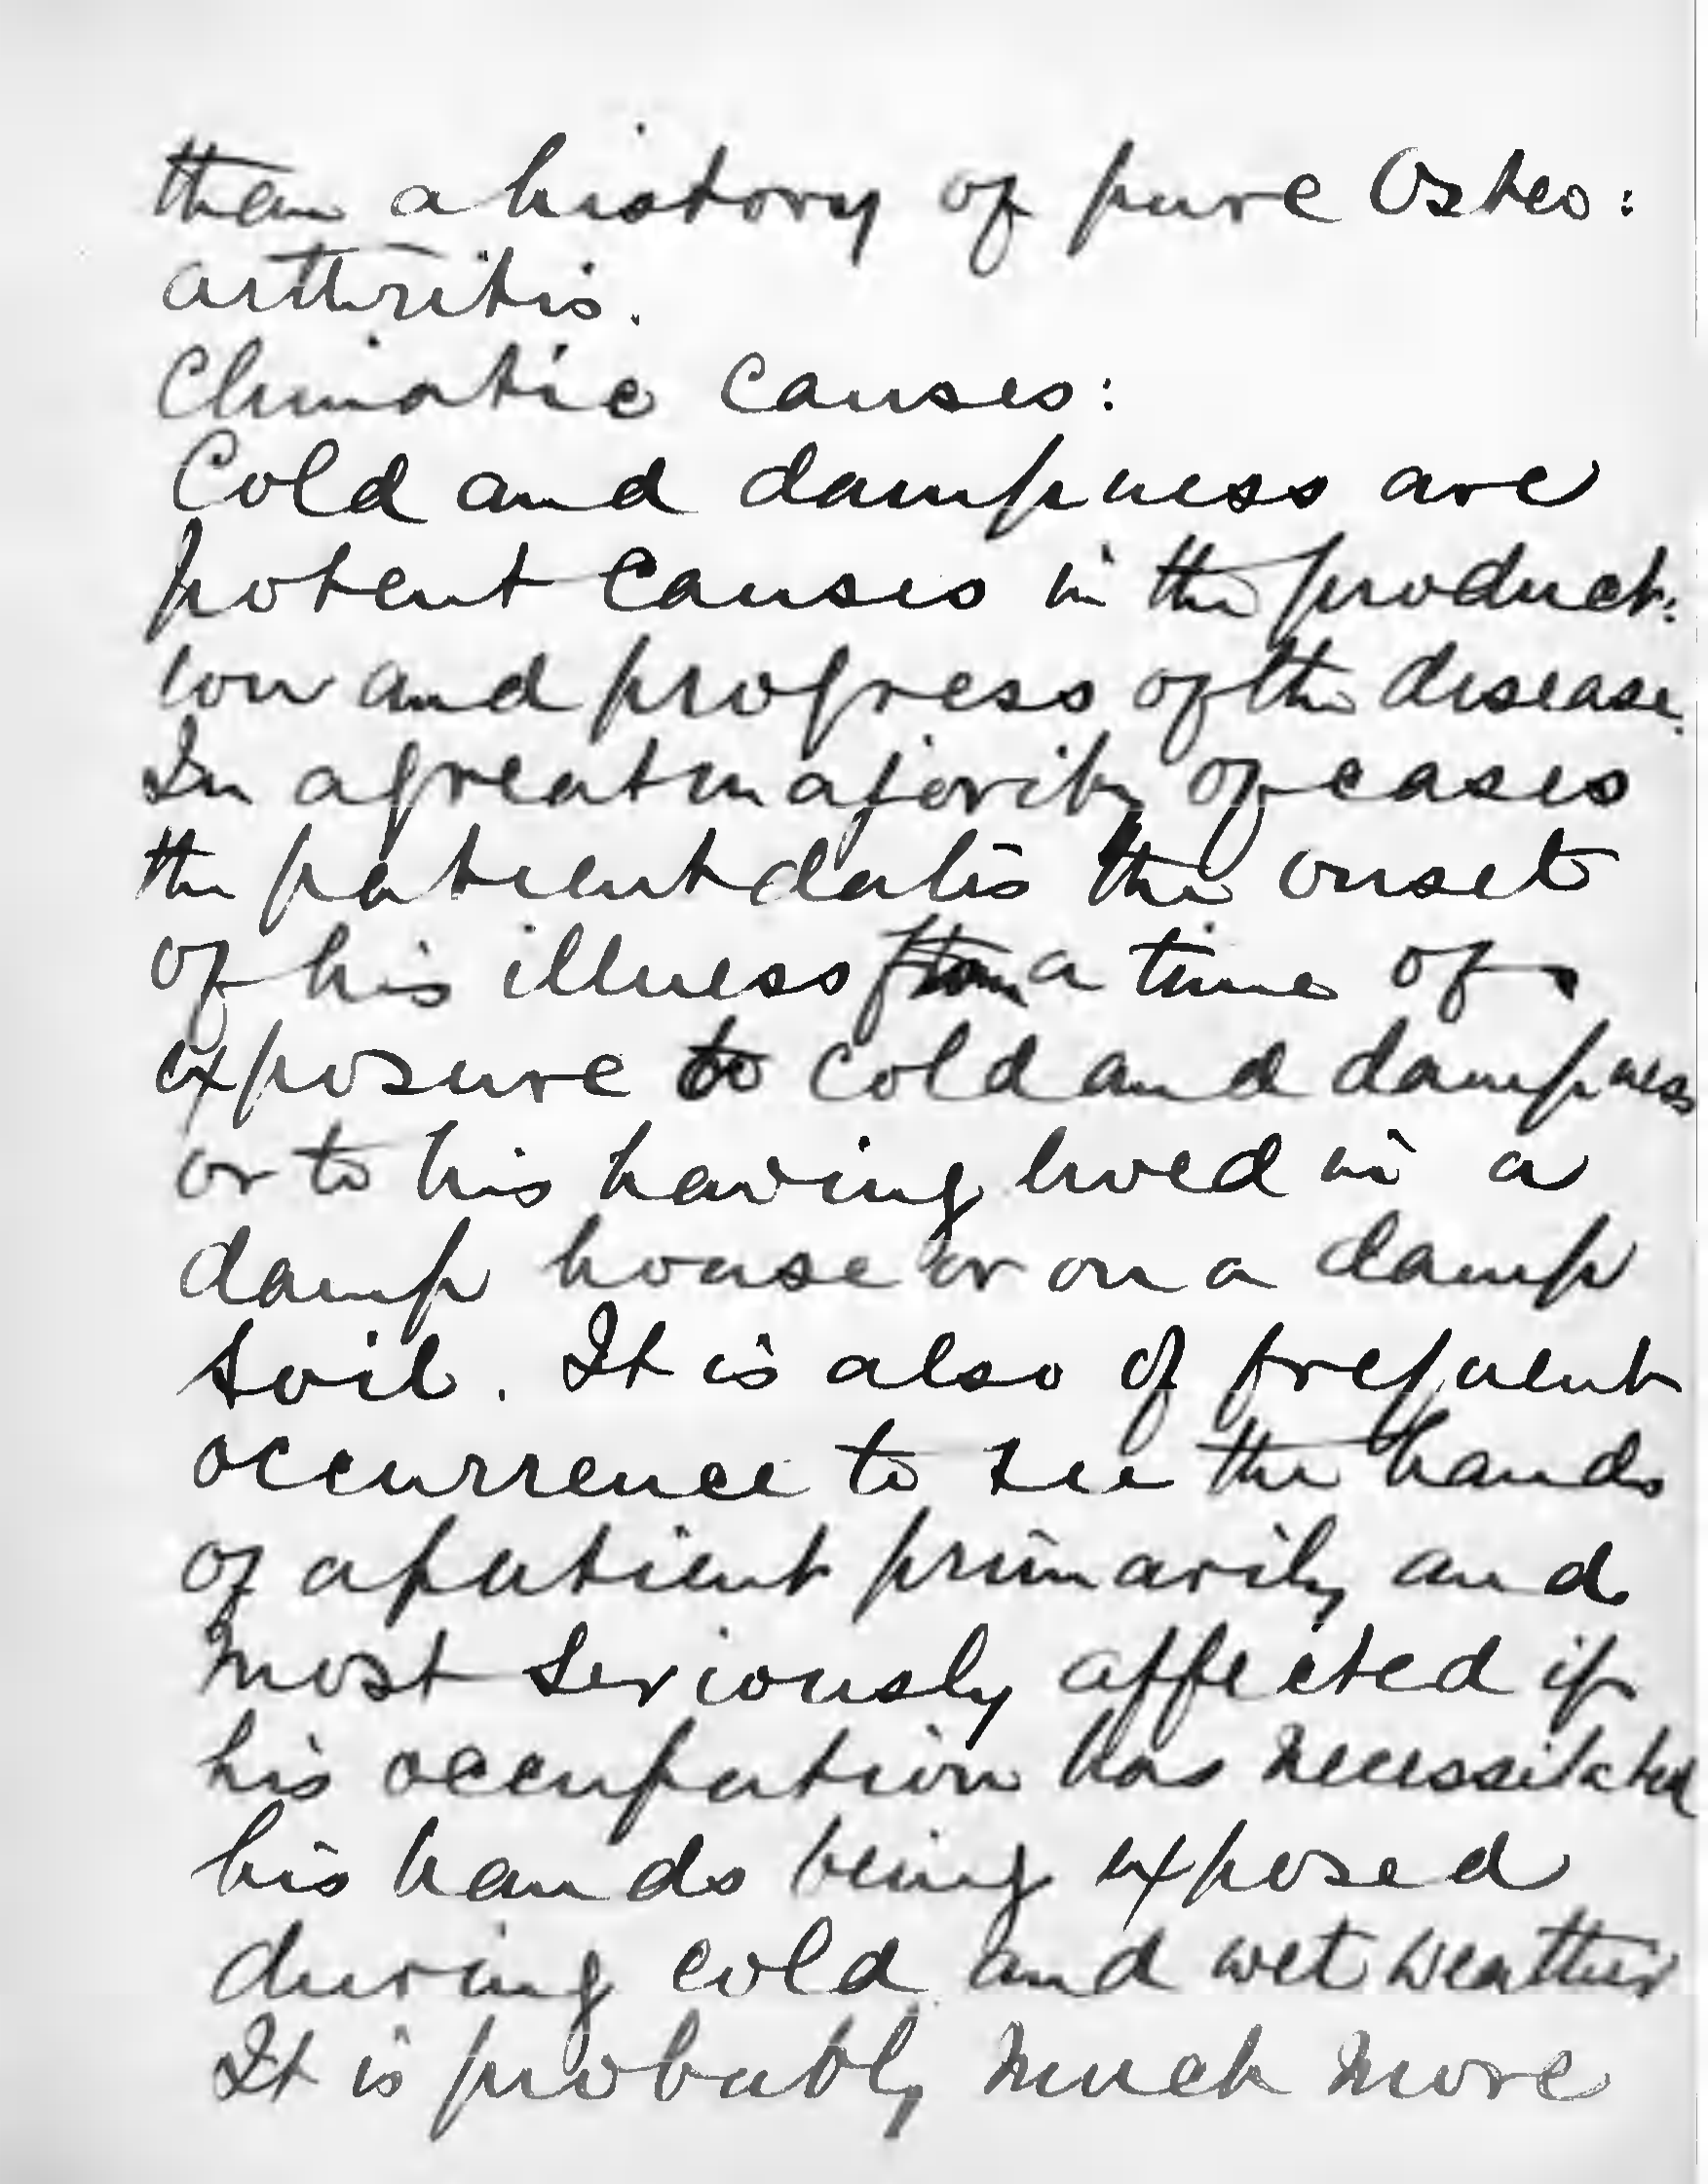 than a history of pure Osteo:
arthritis.
Climatic causes:
Cold and dampness are
potent causes in the product:
ion and progress of the disease.
In a great majority of cases
the patient dates the onset
of his illness from a time of
exposure to cold and dampness
or to his having lived in a
damp house or on a damp
soil. It is also of frequent
occurrence to see the hands
of a patient primarily and
most seriously affected if
his occupation has necessitated
his hands being exposed
during cold and wet weather
It is probably much more